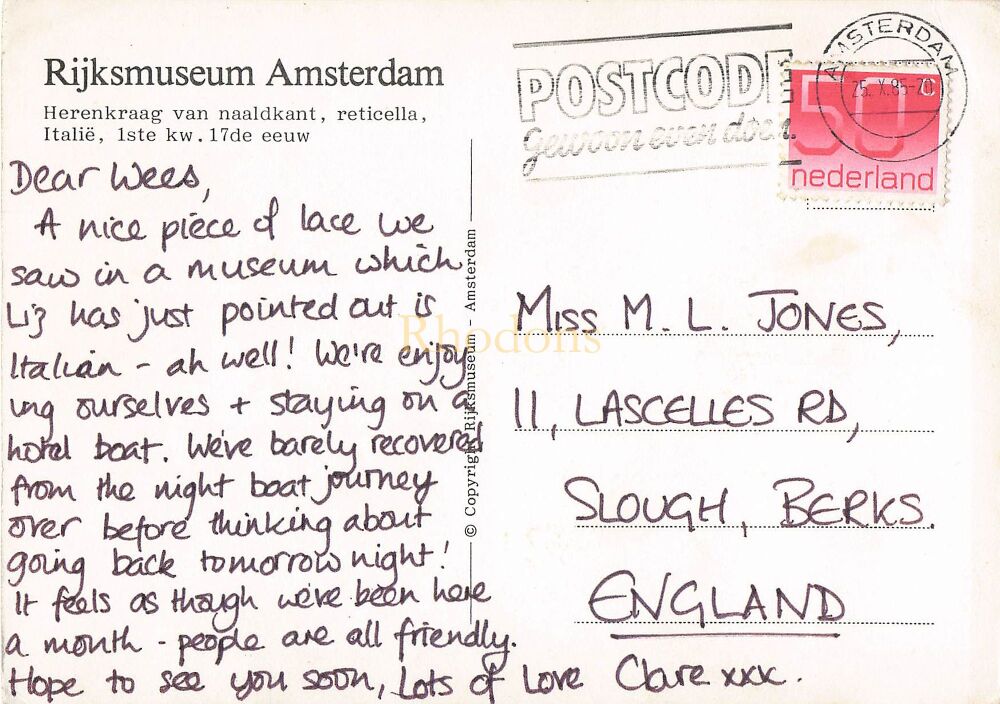 Rijksmuseum Amsterdam
Herenkraag van naaldkant, reticella,
Italië, 1ste kw. 17de eeuw
Dear Wees,
A nice piece of lace we
saw in a museum which
Liz has just pointed out is
Italian - ah well! We're enjoy
ing ourselves + staying on a
hotel boat. We've barely recovered
from the night boat journey
over before thinking about
going back tomorrow night!
It feels as though we've been here
a month - people are all friendly.
Hope to see you soon, Lots of Love Clare xxx.
© Copyright Rijksmuseum - Amsterdam
POSTCODE
gewoon even doen.
AMSTERDAM
25.X.85-20
50 c
nederland
MISS M. L. JONES,
11, LASCELLES RD,
SLOUGH, BERKS.
ENGLAND
Rhodons